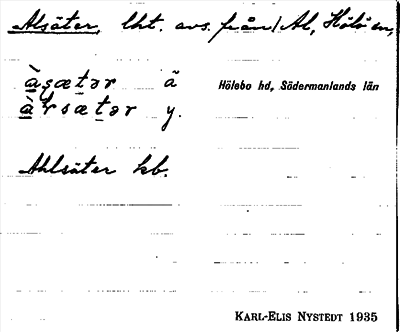 Alsäter, lht. avs. från Al, Hölö sn,
à̱ṣæṯər ä
Hölebo hd, Södermanlands län
à̱rsæṯər y.
Ahlsäter kb.
KARL-ELIS NYSTEDT 1935